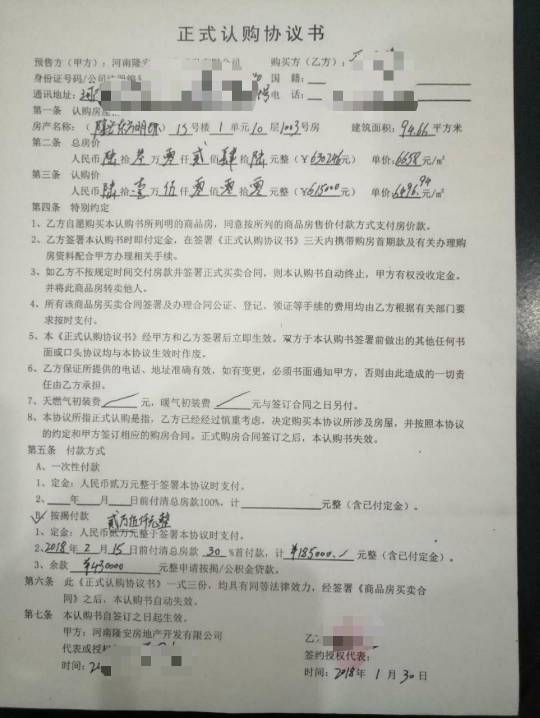 正式认购协议书
预售方（甲方）：河南隆安 购买方（乙方）：
身份证号码/公司注册编 国 籍：
通讯地址： 电 话：
第一条 认购房屋
房产名称：（隆安东方明珠）15号楼 1 单元10层1003号房 建筑面积：94.66平方米
第二条 总房价
人民币陆拾叁万零仟贰佰肆拾陆元整（￥630246元） 单价：6658元/㎡
第三条 认购价
人民币陆拾壹万伍仟零佰零拾零元整（￥615000元） 单价：6496.94元/㎡
第四条 特别约定
1、乙方自愿购买本认购书所列明的商品房，同意按所列的商品房售价付款方式支付房价款。
2、乙方签署本认购书时即付定金，在签署《正式认购协议书》三天内携带购房首期款及有关办理购
房资料配合甲方办理相关手续。
3、如乙方不按规定时间交付房款并签署正式买卖合同，则本认购书自动终止，甲方有权没收定金。
并将此商品房转卖他人。
4、所有该商品房买卖合同签署及办理合同公证、登记、领证等手续的费用均由乙方根据有关部门要
求按时支付。
5、本《正式认购协议书》经甲方和乙方签署后立即生效。双方于本认购书签署前做出的其他任何书
面或口头协议均与本协议生效时作废。
6、乙方保证所提供的电话、地址准确有效，如有变更，必须书面通知甲方，否则由此造成的一切责
任由乙方承担。
7、天燃气初装费 元，暖气初装费 元与签订合同之日另付。
8、本协议所指正式认购是指，乙方已经经过慎重考虑，决定购买本协议所涉及房屋，并按照本协议
的约定和甲方签订相应的购房合同。正式购房合同签订之后，本认购书失效。
第五条 付款方式
A、一次性付款
1、定金：人民币贰万元整于签署本协议时支付。
2、 年 月 日前付清总房款100%、计 元整（含已付定金）。
B、按揭付款 贰万伍仟元整
1、定金：人民币贰万元整于签署本协议时支付。
2、2018年2月15日前付清总房款30%首付款，计￥185000.元整（含已付定金）。
3、余款￥430000元整申请按揭/公积金贷款。
第六条 此《正式认购协议书》一式三份，均具有同等法律效力，经签署《商品房买卖合
同》之后，本认购书自动失效。
第七条 本认购书自签订之日起生效。
甲方：河南隆安房地产开发有限公司 乙
代表或授 签约授权代表：
时间：20 时间：2018年1月30日